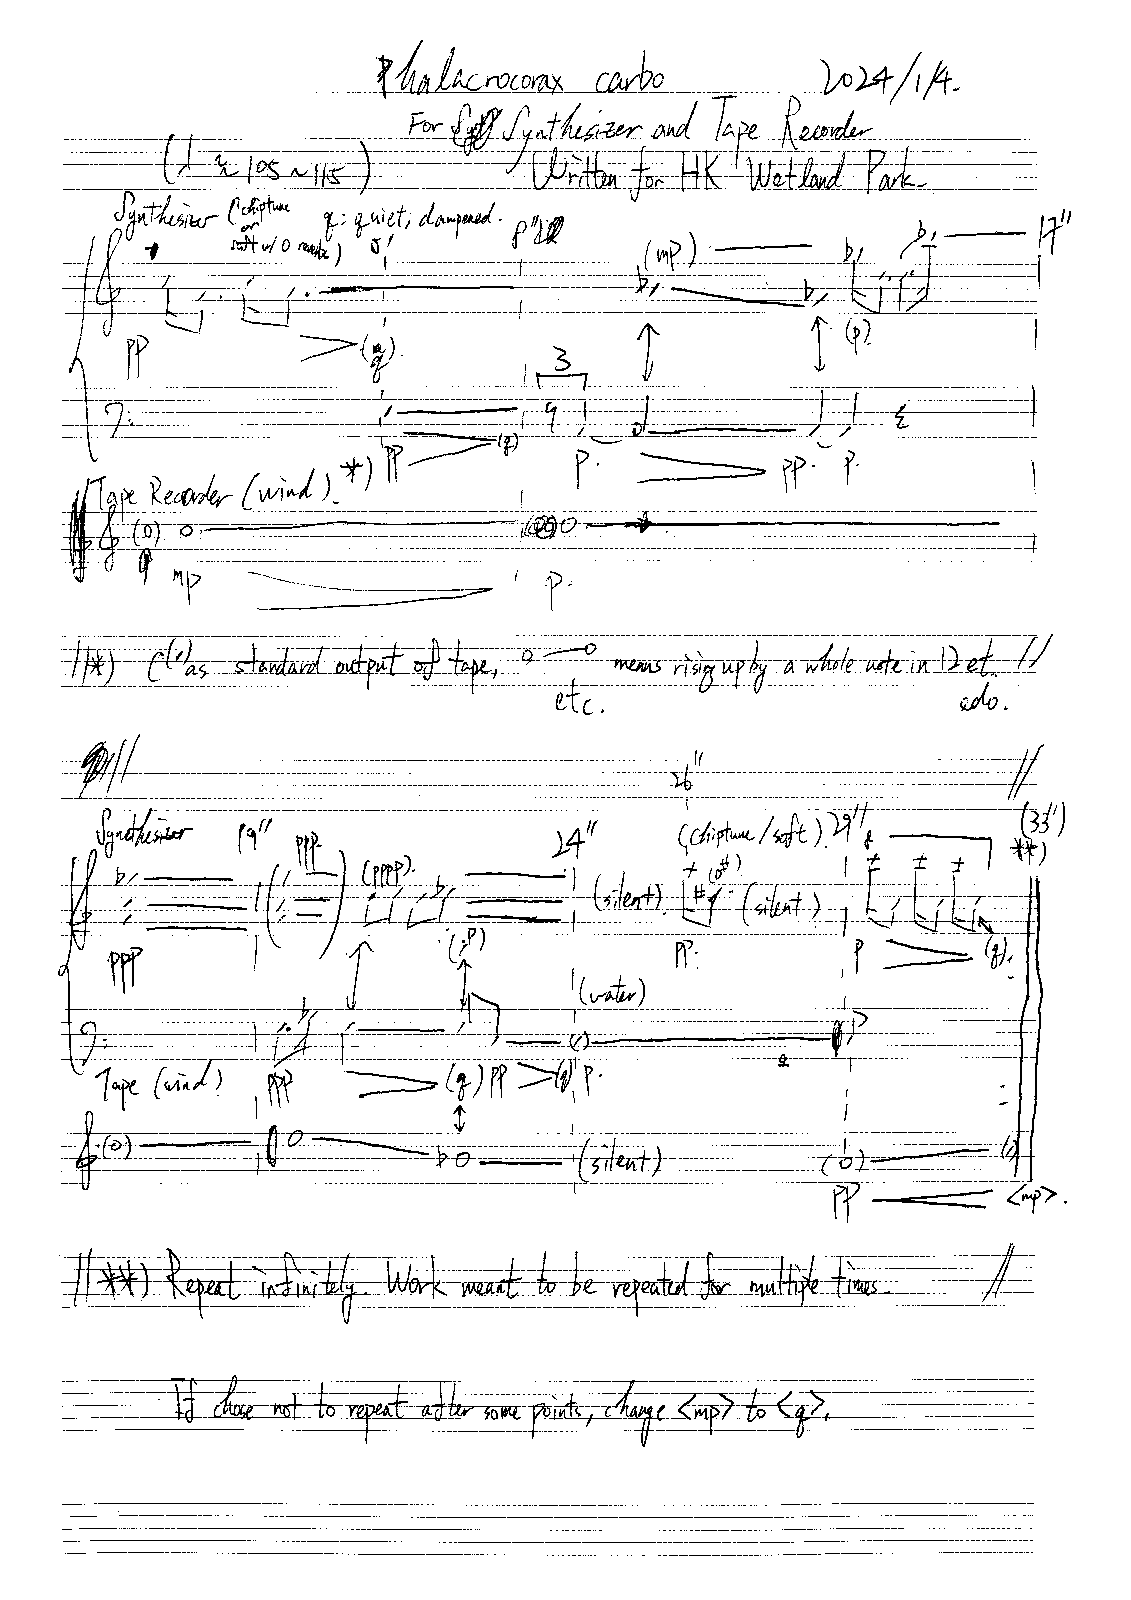 Phalacrocorax carbo 2024/1/4.
For Synthesizer and Tape Recorder
(♩ ≈ 105~115) Written for HK Wetland Park.
Synthesizer (chiptune q: quiet; dampened.
or
soft w/ 0 5" 8"
(mp) 17"
pp (q) (p)
3
pp (q) p. pp. p.
Tape Recorder (wind). *)
(o)
mp p.
//*) as standard output of tape, o—o means rising up by a whole note in 12 et. //
etc. edo.
// 26" //
Synthesizer 19" ppp (pppp). 24" (chiptune/soft). 29" (33")
**)
(silent). (silent)
ppp pp. p (q).
(water)
Tape (wind) ppp (q) pp (q) p.
(o) (silent) (o)
pp <mp>.
//**) Repeat infinitely. Work meant to be repeated for multiple times. //
If chose not to repeat after some points, change <mp> to <q>.